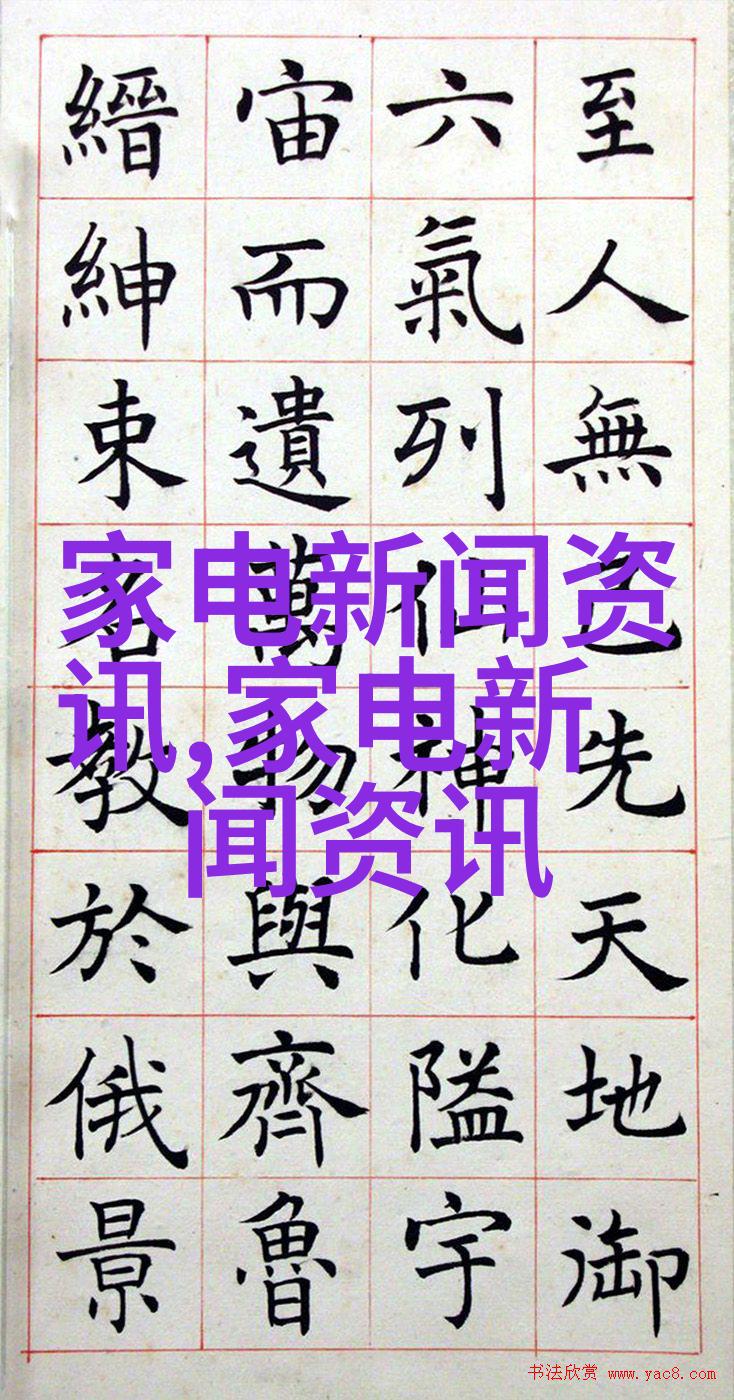 至人無己先天地御
六氣列仙神化隘宇
宙而遺萬物與齊魯
縉紳束名教於俄景
家电新闻资
讯,家电新
闻资讯
书法欣赏 www.yac8.com